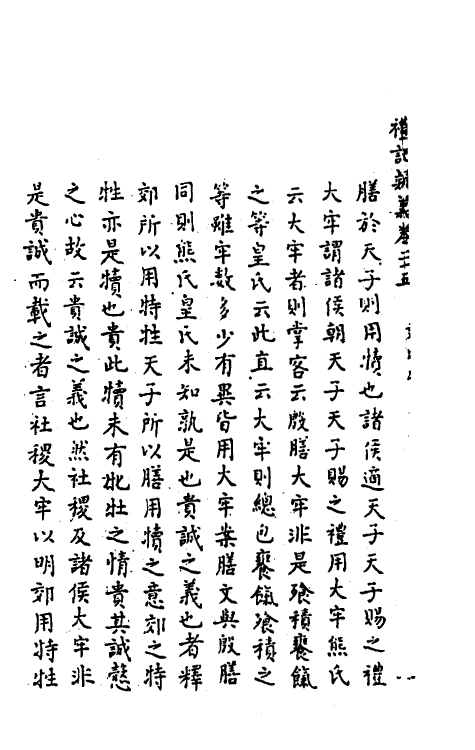 禮記新義卷二十五
膳於天子則用犢也諸侯適天子天子賜之禮
大牢謂諸侯朝天子天子賜之禮用大牢熊氏
云大牢者則掌客云殷膳大牢非是飱積饔餼
之等皇氏云此直云大牢則總包饔餼飱積之
等雖牢数多少有異皆用大牢案膳文與殷膳
同則熊氏皇氏未知孰是也貴誠之義也者釋
郊所以用特牲天子所以膳用犢之意郊之特
牲亦是犢也貴此犢未有牝牡之情貴其誠慤
之心故云貴誠之義也然社稷及諸侯大牢非
是貴誠而載之者言社稷大牢以明郊用特牲